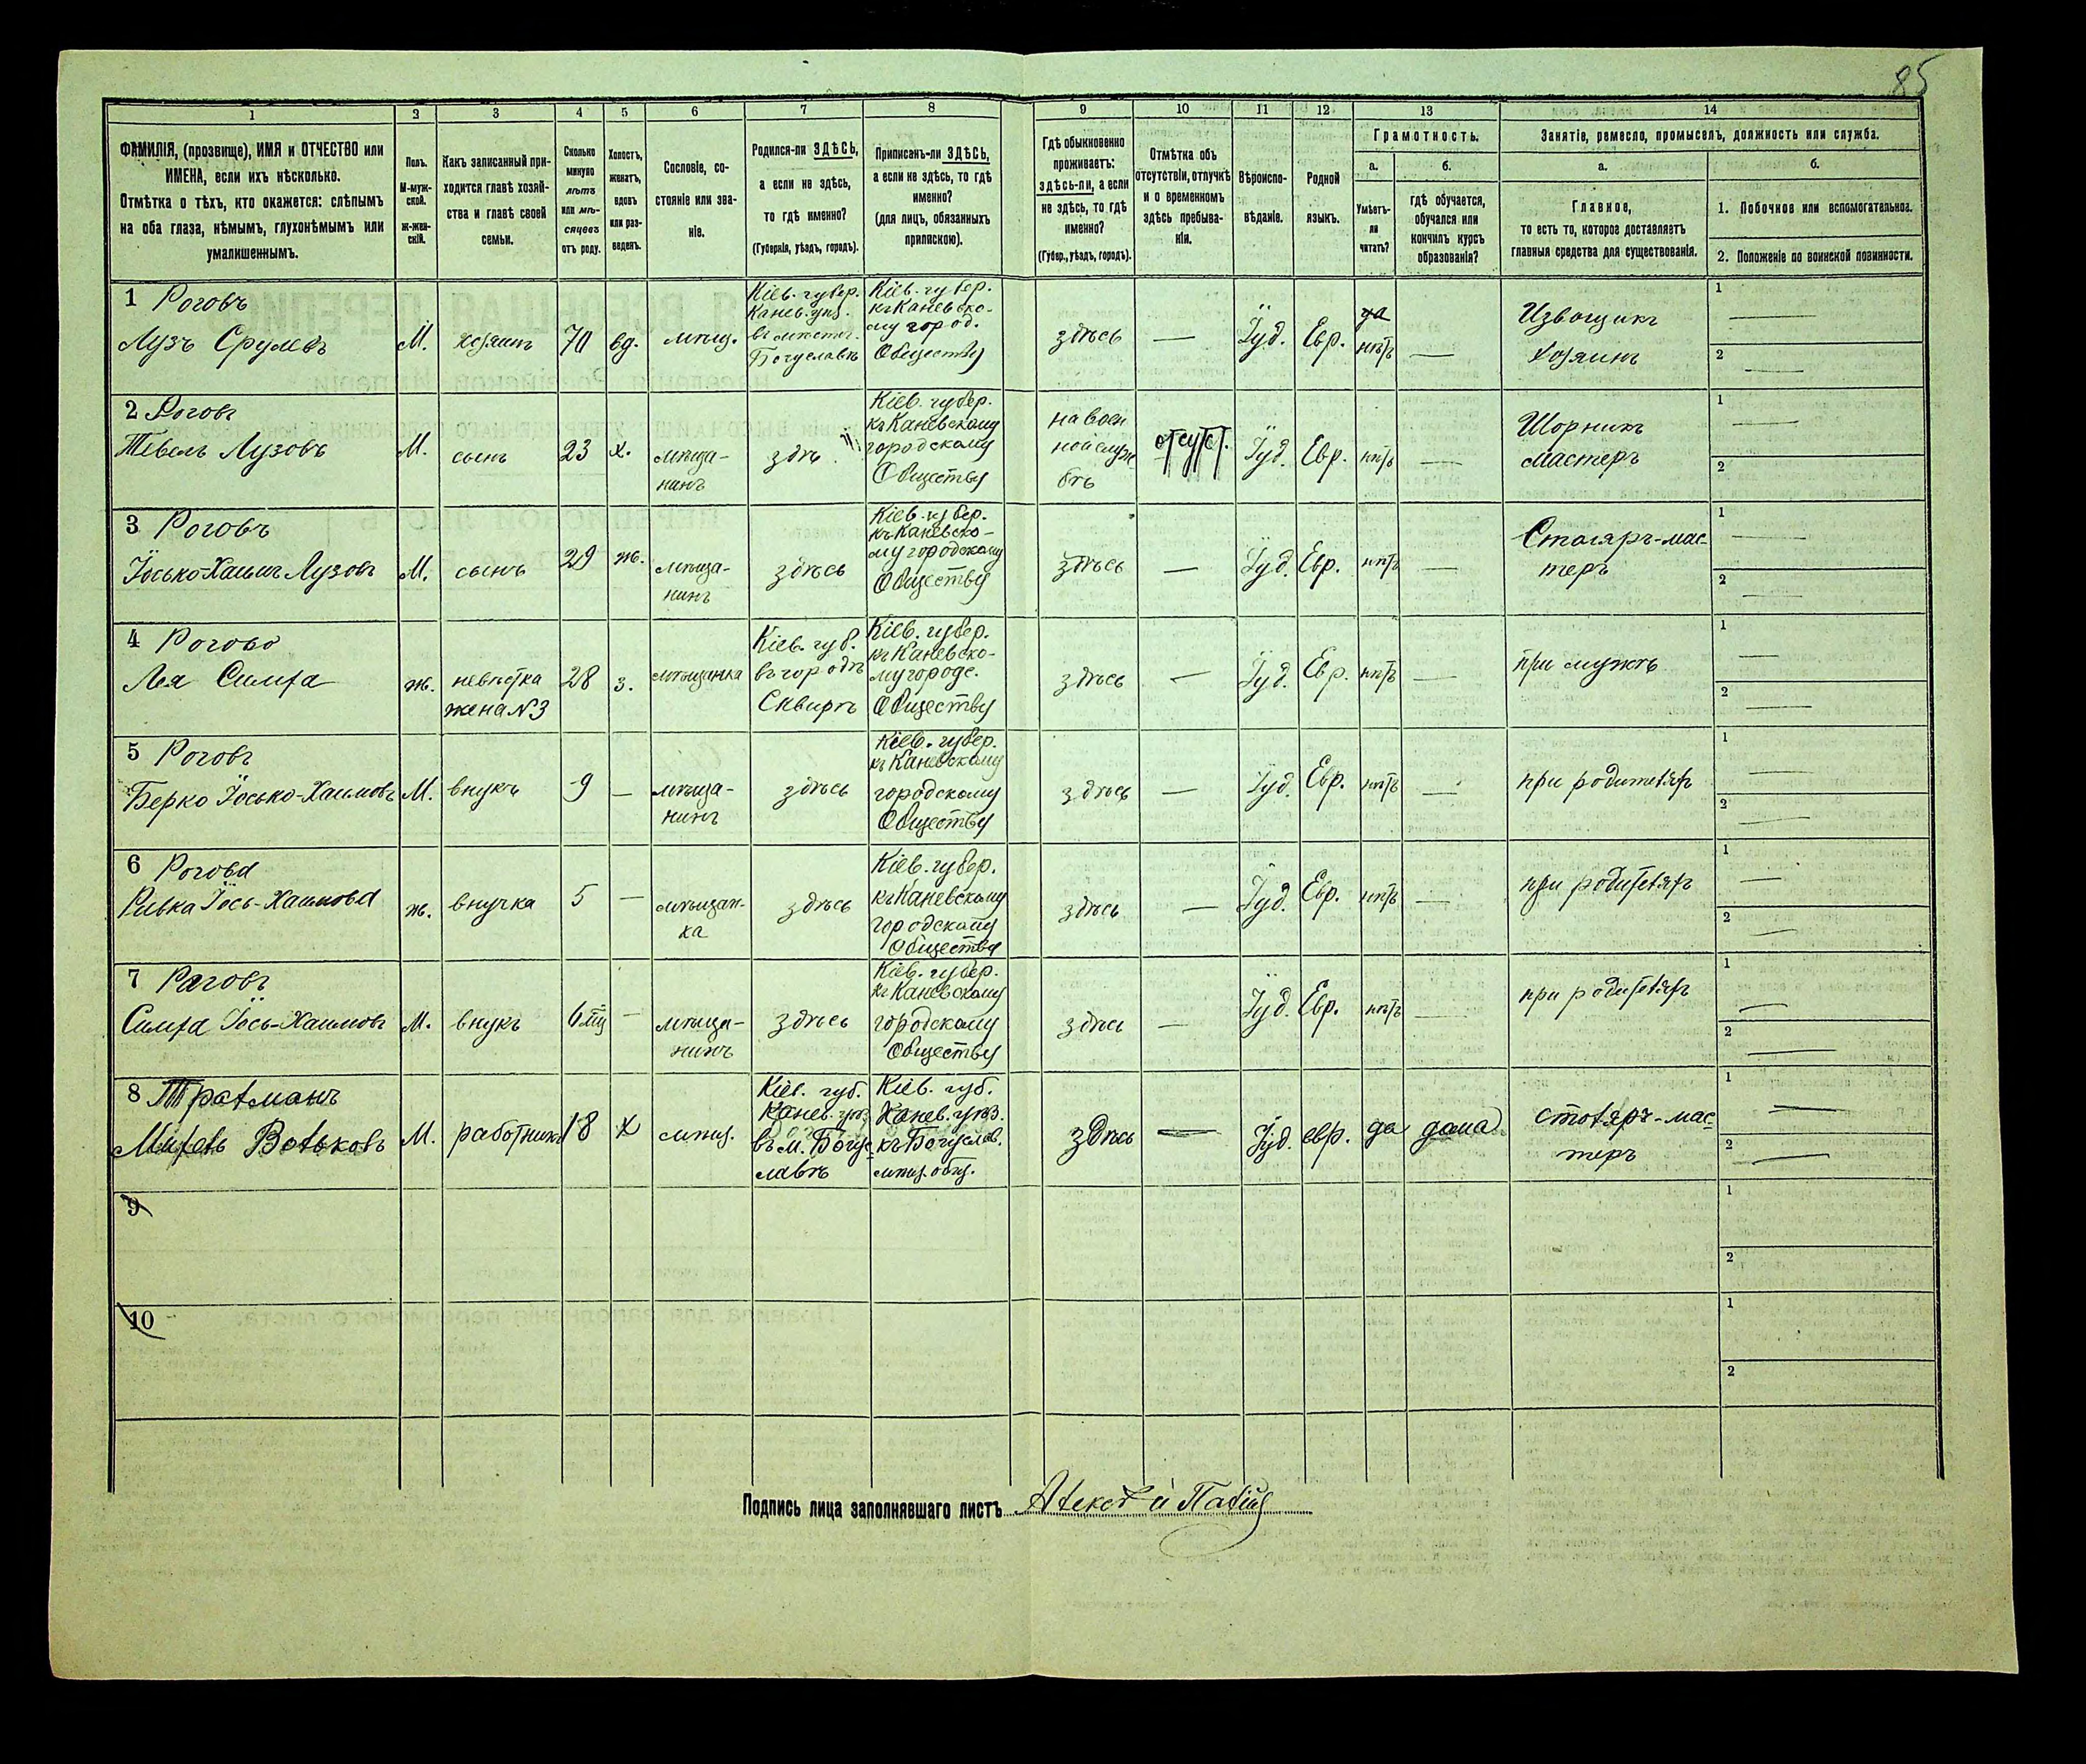 85
1 2 3 4 5 6 7 8 9 10 11 12 13 14
ФАМИЛІЯ, (прозвище), ИМЯ и ОТЧЕСТВО или
ИМЕНА, если ихъ нѣсколько.
Отмѣтка о тѣхъ, кто окажется: слѣпымъ
на оба глаза, нѣмымъ, глухонѣмымъ или
умалишеннымъ.
Полъ.
М-муж-
ской.
Ж-жен-
скій.
Какъ записанный при-
ходится главѣ хозяй-
ства и главѣ своей
семьи.
Сколько
минуло
лѣтъ
или мѣ-
сяцевъ
отъ роду.
Холостъ,
женатъ,
вдовъ
или раз-
веденъ.
Сословіе, со-
стояніе или зва-
ніе.
Родился-ли ЗДѢСЬ,
а если не здѣсь,
то гдѣ именно?
(Губернія, уѣздъ, городъ).
Приписанъ-ли ЗДѢСЬ,
а если не здѣсь, то гдѣ
именно?
(для лицъ, обязанныхъ
припискою).
Гдѣ обыкновенно
проживаетъ:
здѣсь-ли, а если
не здѣсь, то гдѣ
именно?
(Губер., уѣздъ, городъ).
Отмѣтка объ
отсутствіи, отлучкѣ
и о временномъ
здѣсь пребыва-
ніи.
Вѣроиспо-
вѣданіе.
Родной
языкъ.
Грамотность.
а.
Умѣетъ-
ли
читать?
б.
гдѣ обучается,
обучался или
кончилъ курсъ
образованія?
Занятіе, ремесло, промыселъ, должность или служба.
а.
Главное,
то есть то, которое доставляетъ
главныя средства для существованія.
б.
1. Побочное или вспомогательное.
2. Положеніе по воинской повинности.
1 Роговъ
Лузъ Срулевъ
М.
хозяинъ
70
вд.
мѣщ.
Кіев. губер.
Канев. уѣз.
въ мѣстеч.
Богуславѣ
Кіев. губер.
къ Каневско-
му город.
Обществу
здѣсь
—
Іуд.
Евр.
да
нѣтъ
—
Извощикъ
хозяинъ
1 —
2 —
2 Роговъ
Тевель Лузовъ
М.
сынъ
23
х.
мѣща-
нинъ
здѣ
Кіев. губер.
къ Каневскому
городскому
Обществу
на воен
ной служ
бѣ
отсутст.
Іуд.
Евр.
нѣтъ
—
Шорникъ
мастеръ
1 —
2
3 Роговъ
Іосько-Хаимъ Лузовъ
М.
сынъ
29
ж.
мѣща-
нинъ
здѣсь
Кіев. губер.
къ Каневско-
му городскому
Обществу
здѣсь
—
Іуд.
Евр.
нѣтъ
—
Столяръ-мас-
теръ
1 —
2 —
4 Рогово
Лея Симха
ж.
невѣстка
жена N3
28
з.
мѣщанка
Кіев. губ.
въ городѣ
Сквирѣ
Кіев. губер.
къ Каневско-
му городс.
Обществу
здѣсь
—
Іуд.
Евр.
нѣтъ
—
при мужѣ
1 —
2 —
5 Роговъ
Берко Іосько-Хаимовъ
М.
внукъ
9
—
мѣща-
нинъ
здѣсь
Кіев. губер.
къ Каневскому
городскому
Обществу
здѣсь
—
Іуд.
Евр.
нѣтъ
—
при родителях
1 —
2 —
6 Рогова
Ривка Іось-Хаимова
ж.
внучка
5
—
мѣщан-
ка
здѣсь
Кіев. губер.
къ Каневскому
городскому
Общества
здѣсь
—
Іуд.
Евр.
нѣтъ
—
при родителях
1 —
2 —
7 Раговъ
Симха Іось-Хаимовъ
М.
внукъ
6 мц
—
мѣща-
нинъ
здѣсь
Кіев. губер.
къ Каневскому
городскому
Обществу
здѣсь
—
Іуд.
Евр.
нѣтъ
—
при родителях
1 —
2 —
8 Тратманъ
Михель Вольковъ
М.
работникъ
18
х
мѣщ.
Кіев. губ.
Канев. уѣз
въ м. Богу-
славѣ
Кіев. губ.
Канев. уѣз.
къ Богуслав.
мѣщ. общ.
здѣсь
—
Іуд.
евр.
да
дома
столяръ-мас-
теръ
1 —
2 —
9
1
2
10
1
2
Подпись лица заполнявшаго листъ